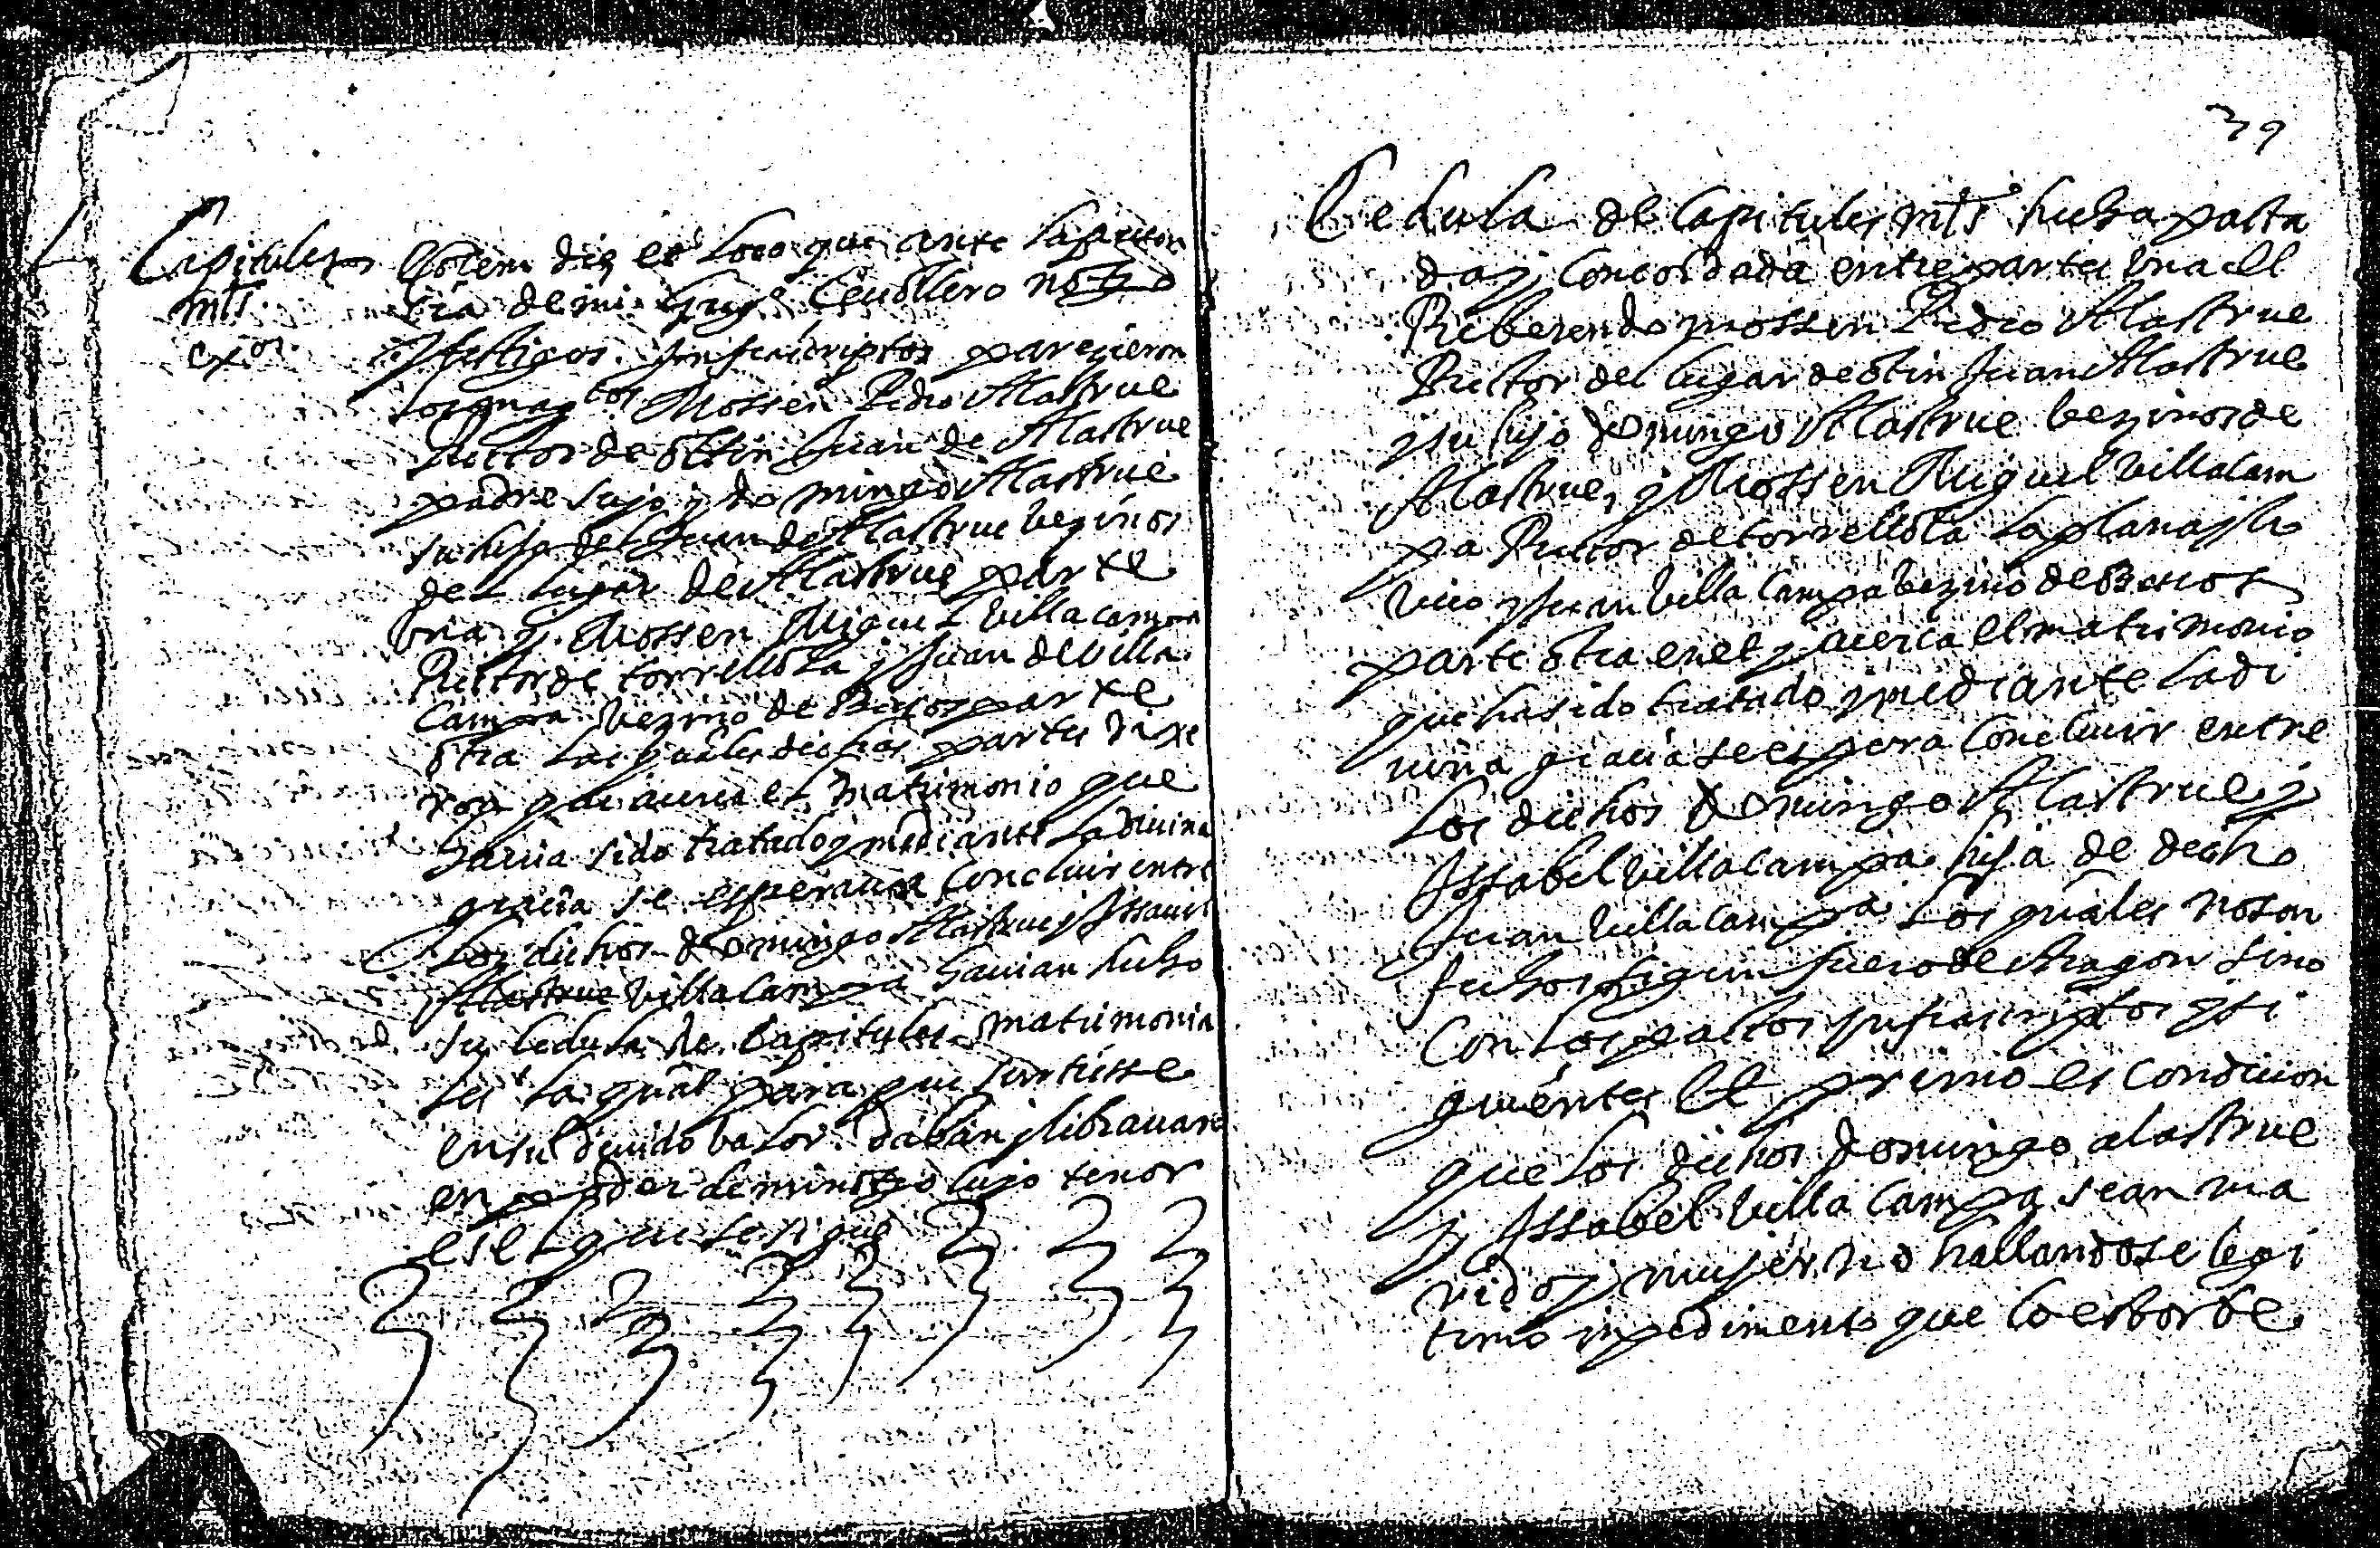 Capitules
mls
exor.
Eodem die et loco que ante la presen
cia de mi Cenollero noto
y testigos infrascriptos parezieron
los magcos Mossen Pedro Alastrue
Rector de Ottin Juan de Alastrue
padre suyo y domingo Alastrue
su hijo del Juan de Alastrue bezinos
del lugar de Alastrue parte
una y Mossen Miguel Villacampa
Rector de torrellola y Juan de Villa
Campa bezino de parte
otra las quales dichas partes dixe
ron que acerca el matrimonio que
hauia sido tratado y mediante la diuina
gracia se esperaua Concluir entre
los dichos domingo Alastrue y Issauel
Alastrue Villa Campa hauian hecho
su cedula de Capitules matrimonia
les la qual para que surtiesse
en su deuido balor daban y librauan
en poder de mi noto cuyo tenor
es el que se sigue
39
Cedula de Capitules mls hecha pacta
da y Concordada entre partes una el
Reberendo mossen Pedro Alastrue
Rector del lugar de Otin Juan Alastrue
y su hijo domingo Alastrue bezinos de
Alastrue, y Mossen Miguel Villacam
pa Rector de torrellola la plana y
y Juan Villa Campa bezino de
parte otra en el y acerca el matrimonio
que ha sido tratado y mediante la di
uina gracia se espera Concluir entre
los dichos domingo Alastrue y
Issabel Villacampa hija de dicho
Juan Villacampa los quales no son
fechos sigun fuero de Aragon sino
Con los pactos infrascriptos y si
guientes Et primo es Condicion
que los dichos domingo alastrue
y Issabel Villa Campa sean ma
rido y mujer no hallandose legi
timo inpedimento que lo estorbe